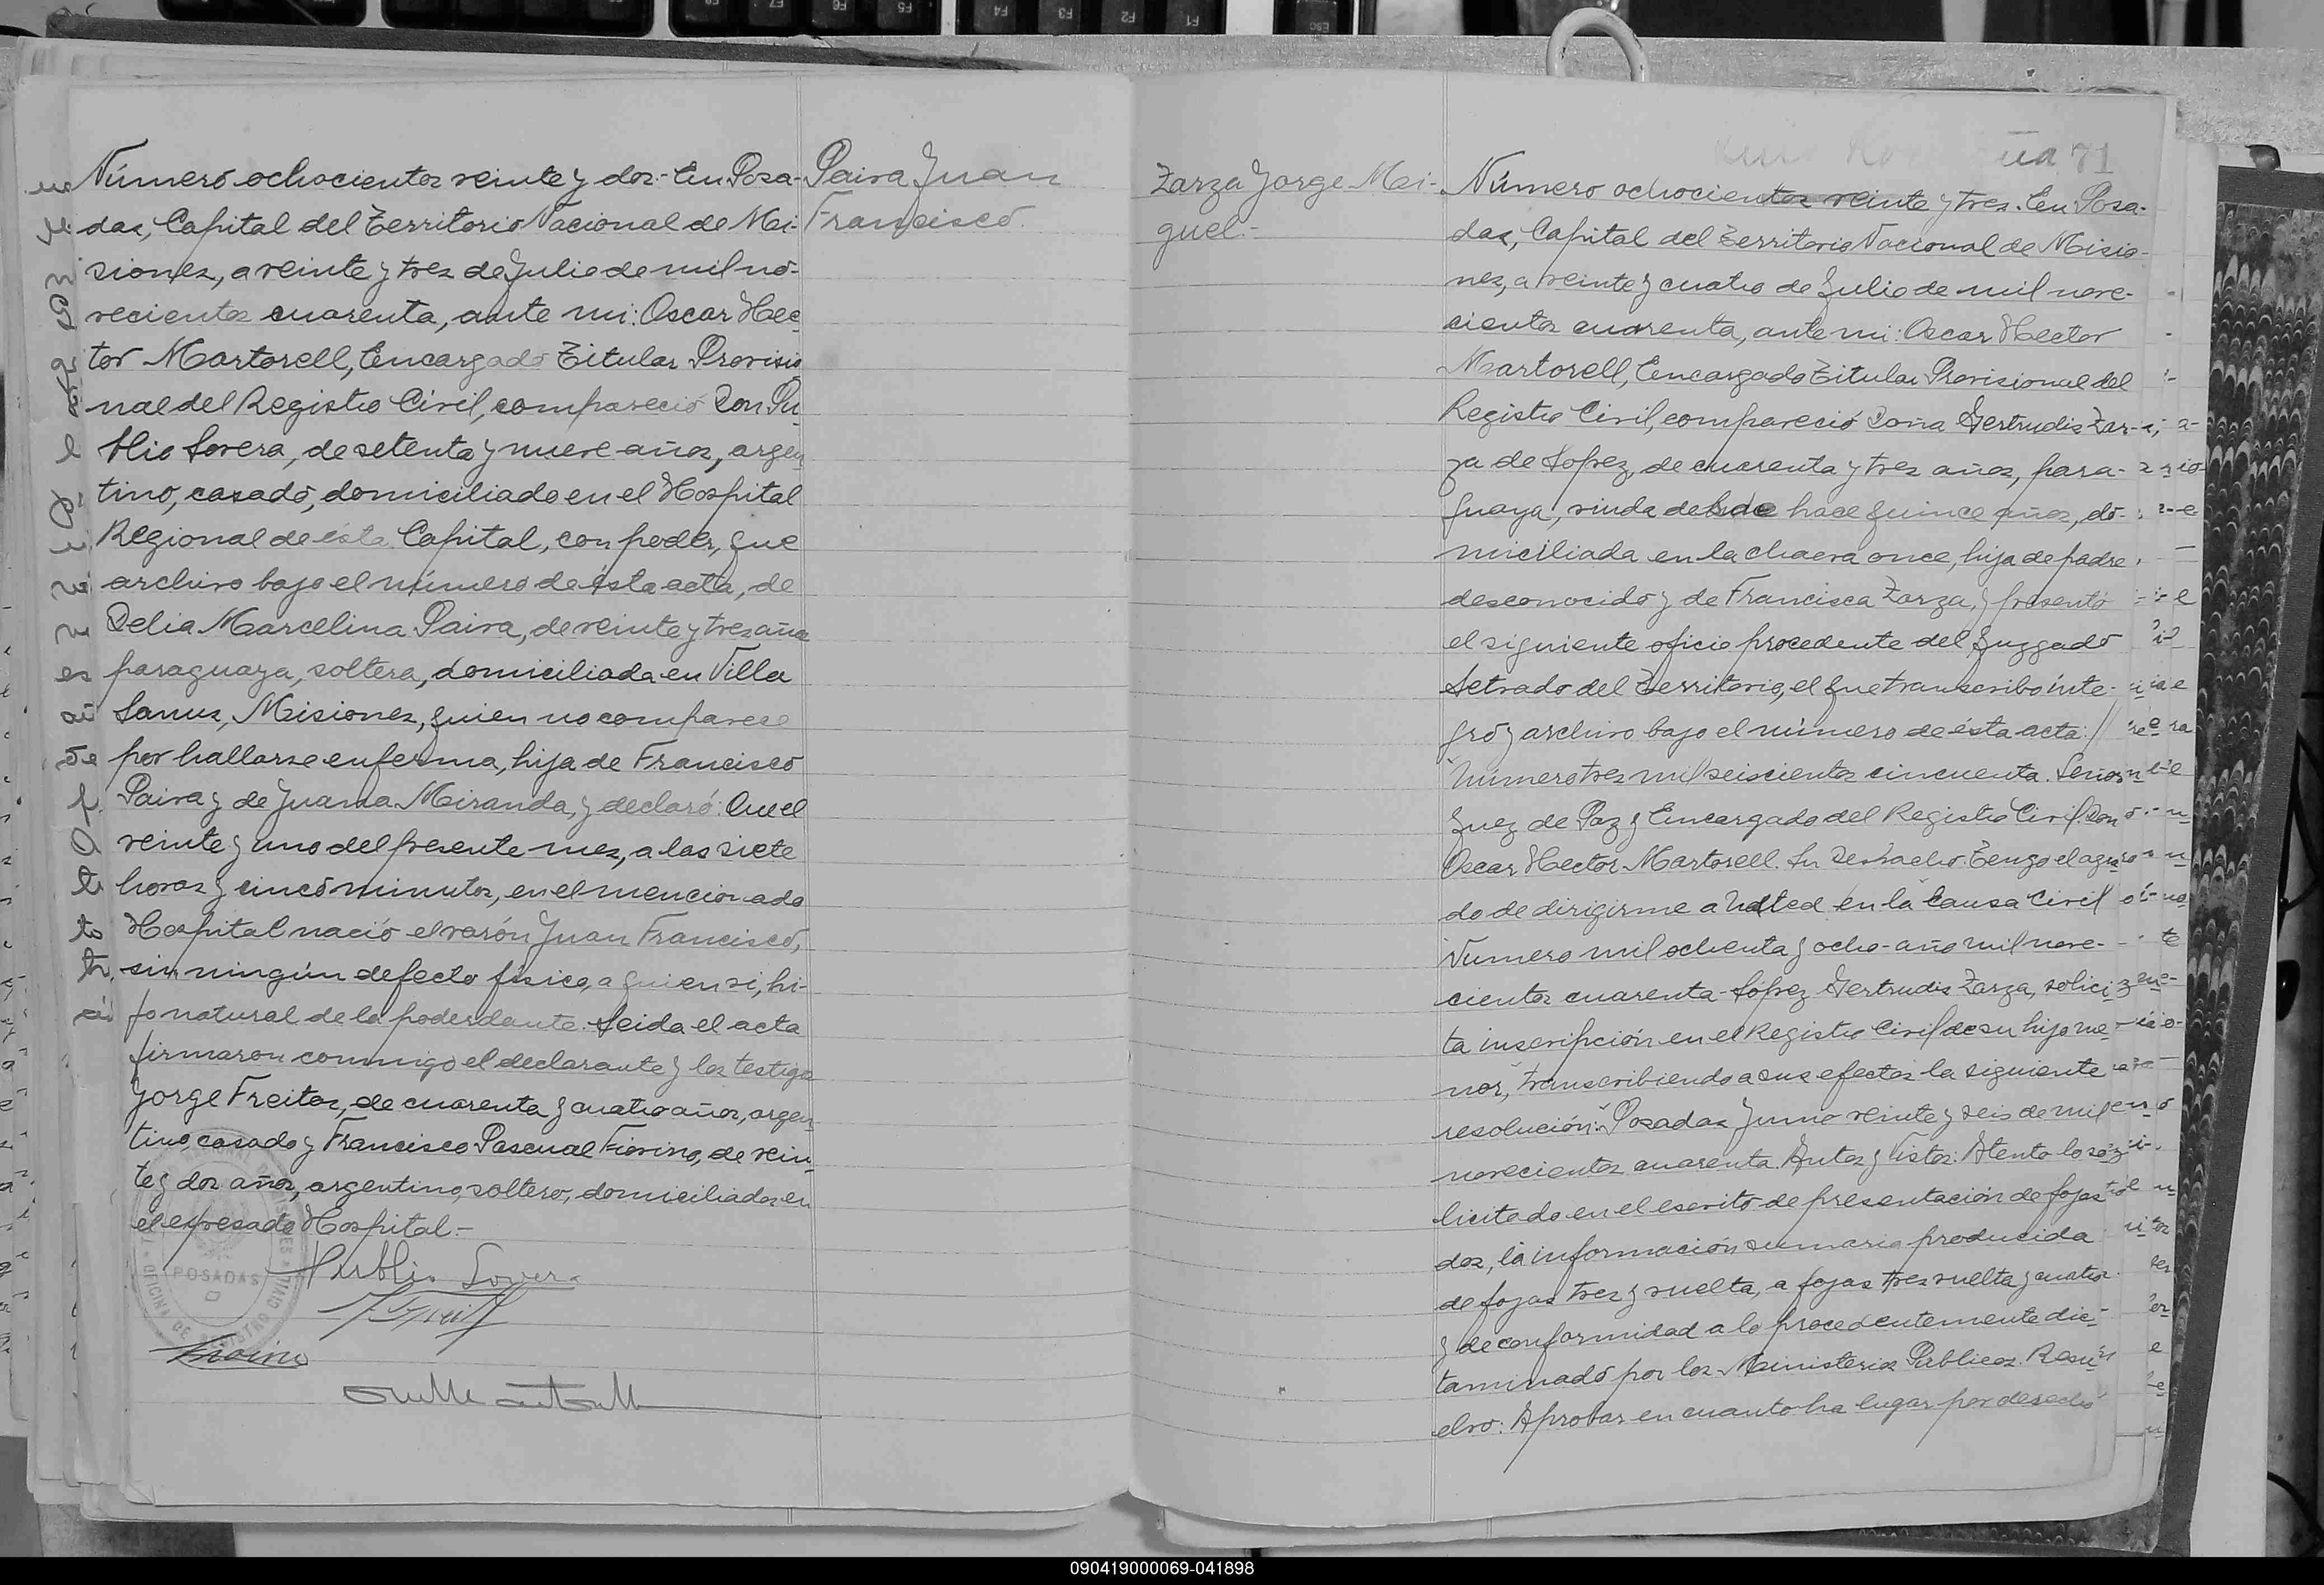 Paiva Juan
Francisco.
Número ochocientos veinte y dos.- En Posa-
das, Capital del Territorio Nacional de Mi-
siones, a veinte y tres de Julio de mil no-
vecientos cuarenta, ante mi: Oscar Hec-
tor Martorell, Encargado Titular Provisio
nal del Registro Civil, compareció Don Pu-
blio Lovera, de setenta y nueve años, argen
tino, casado, domiciliado en el Hospital
Regional de ésta Capital, con poder, que
archivo bajo el número de ésta acta, de
Delia Marcelina Paiva, de veinte y tres años
paraguaya, soltera, domiciliada en Villa
Lanus, Misiones, quien no comparece
por hallarse enferma, hija de Francisco
Paiva y de Juana Miranda, y declaró: Que el
veinte y uno del presente mes, a las siete
horas y cinco minutos, en el mencionado
Hospital nació el varón Juan Francisco,
sin ningún defecto físico, a quien si, hi-
jo natural de la poderdante. Leida el acta
firmaron conmigo el declarante y los testigos
Jorge Freitas, de cuarenta y cuatro años, argen
tino, casado y Francisco Pascual Fiorino, de vein
te y dos años, argentino, soltero, domiciliados en
el expresado Hospital.-
Publio Lovera
POSADAS
OFICINA DE REGISTRO CIVIL
Fiorino
71
Zarza Jorge Mi-
guel.-
Número ochocientos veinte y tres. En Posa-
das, Capital del Territorio Nacional de Misio-
nes, a veinte y cuatro de Julio de mil nove-
cientos cuarenta, ante mi: Oscar Hector
Martorell, Encargado Titular Provisional del
Registro Civil, compareció Doña Gertrudis Zar-
za de López, de cuarenta y tres años, para-
guaya, viuda desde hace quince años, do-
miciliada en la chacra once, hija de padre
desconocido y de Francisca Zarza, y presentó
el siguiente oficio procedente del Juzgado
Letrado del Territorio, el que transcribo ínte-
gro y archivo bajo el número de ésta acta://
"Número tres mil seiscientos cincuenta. Señor
Juez de Paz y Encargado del Registro Civil Don
Oscar Hector Martorell. Su Despacho. Tengo el agra
do de dirigirme a Usted en la Causa Civil
Número mil ochenta y ocho-año mil nove-
cientos cuarenta-López Gertrudis Zarza, solici
ta inscripción en el Registro Civil de su hijo me-
nor, transcribiendo a sus efectos la siguiente
resolución: "Posadas Junio veinte y seis de mil
novecientos cuarenta. Autos y Vistos: Atento lo so-
licitado en el escrito de presentación de fojas
dos, la información sumaria producida
de fojas tres y vuelta, a fojas tres vuelta y cuatro
y de conformidad a lo procedentemente dic-
taminado por los Ministerios Publicos. Resu-
elvo: Aprobar en cuanto ha lugar por derecho
090419000069-041898